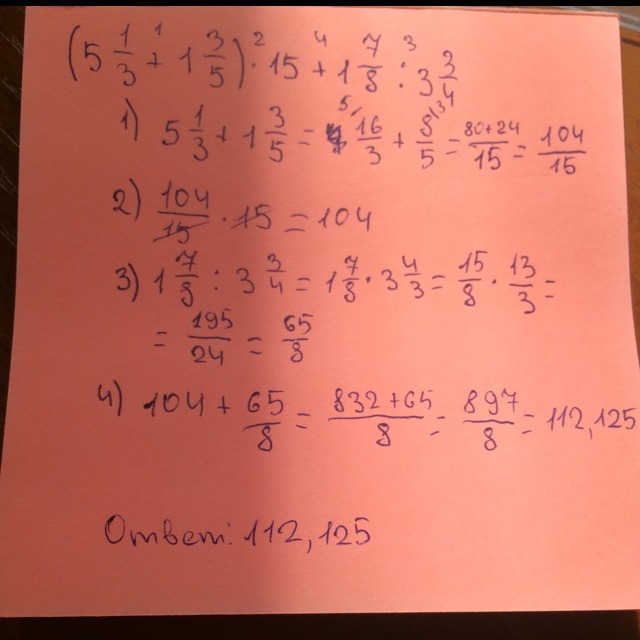 (5 1/3 + 1 3/5) · 15 + 1 7/8 : 3 3/4
1) 5 1/3 + 1 3/5 = 16/3 + 8/5 = 80+24/15 = 104/15
2) 104/15 · 15 = 104
3) 1 7/8 : 3 3/4 = 1 7/8 · 3 4/3 = 15/8 · 13/3 =
= 195/24 = 65/8
4) 104 + 65/8 = 832+65/8 = 897/8 = 112,125
Ответ: 112,125